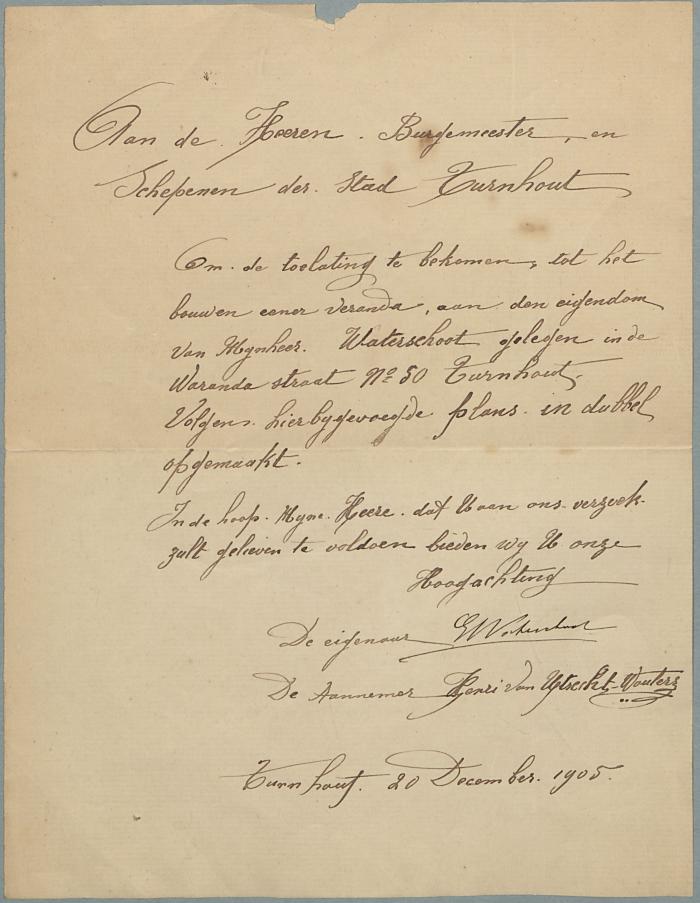 Aan de Heeren Burgemeester, en
Schepenen der Stad Turnhout
Om de toelating te bekomen, tot het
bouwen eener veranda, aan den eigendom
van Mynheer Waterschoot gelegen in de
Waranda straat Nº 50 Turnhout,
Volgens hierbygevoegde plans in dubbel
opgemaakt.
In de hoop Myne Heere dat U aan ons verzoek
zult gelieven te voldoen bieden wy U onze
Hoogachting
De eigenaar
De Aannemer Henri Van Utrecht-Wouters
Turnhout. 20 December. 1905.